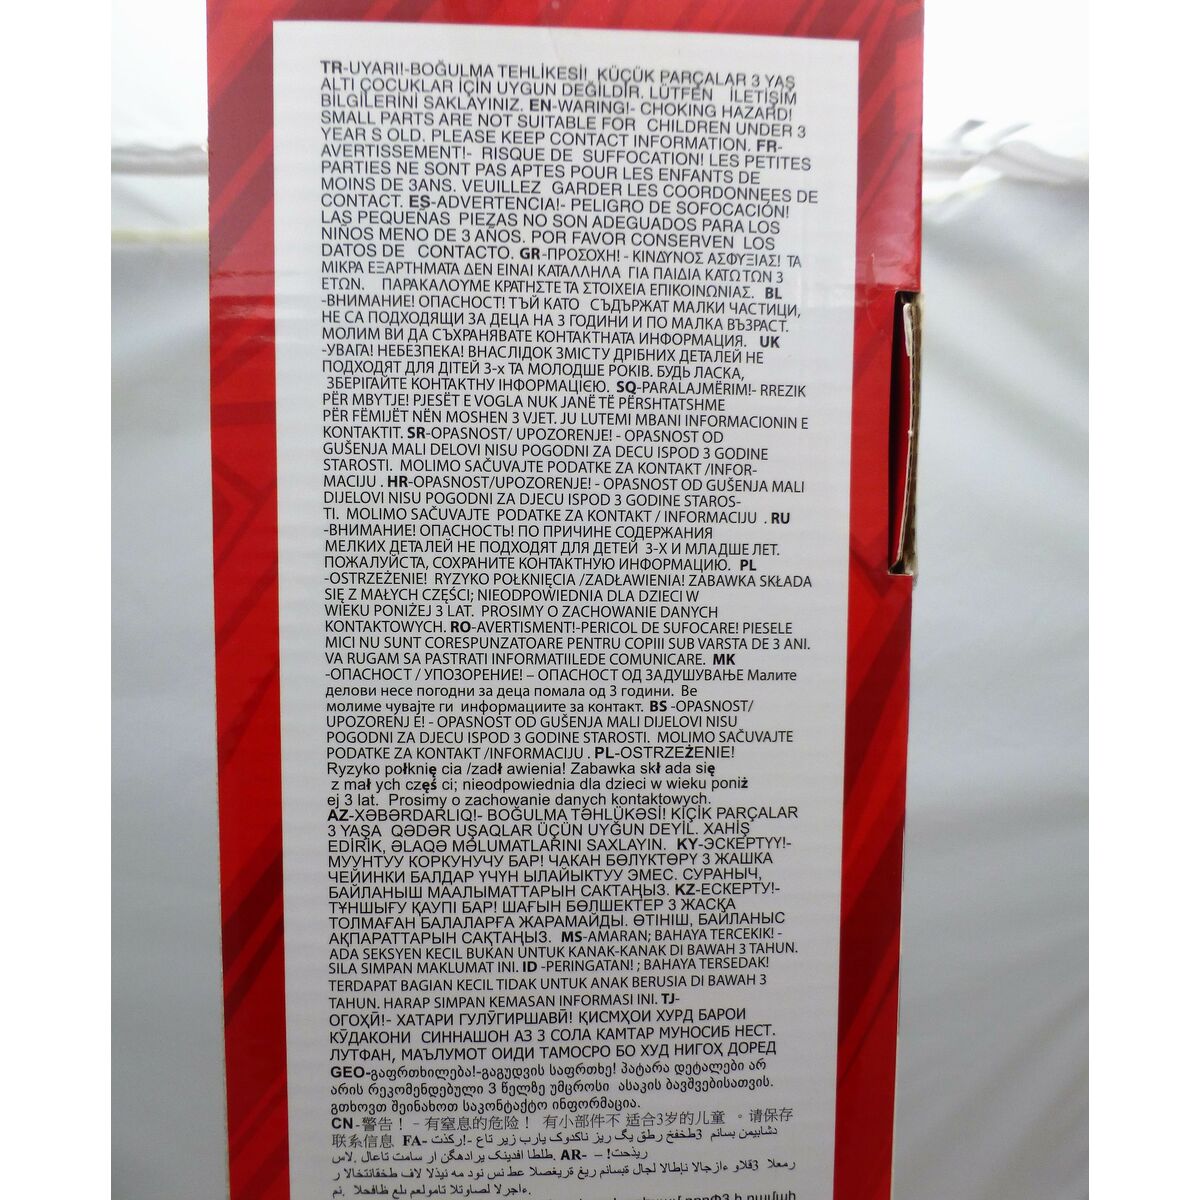 TR-UYARI!-BOĞULMA TEHLİKESİ! KÜÇÜK PARÇALAR 3 YAŞ
ALTI ÇOCUKLAR İÇİN UYGUN DEĞİLDİR. LÜTFEN İLETİŞİM
BİLGİLERİNİ SAKLAYINIZ. EN-WARING!- CHOKING HAZARD!
SMALL PARTS ARE NOT SUITABLE FOR CHILDREN UNDER 3
YEAR S OLD. PLEASE KEEP CONTACT INFORMATION. FR-
AVERTISSEMENT!- RISQUE DE SUFFOCATION! LES PETITES
PARTIES NE SONT PAS APTES POUR LES ENFANTS DE
MOINS DE 3ANS. VEUILLEZ GARDER LES COORDONNEES DE
CONTACT. ES-ADVERTENCIA!- PELIGRO DE SOFOCACIÓN!
LAS PEQUEÑAS PIEZAS NO SON ADEGUADOS PARA LOS
NIÑOS MENO DE 3 AÑOS. POR FAVOR CONSERVEN LOS
DATOS DE CONTACTO. GR-ΠΡΟΣΟΧΗ! - ΚΙΝΔΥΝΟΣ ΑΣΦΥΞΙΑΣ! ΤΑ
ΜΙΚΡΑ ΕΞΑΡΤΗΜΑΤΑ ΔΕΝ ΕΙΝΑΙ ΚΑΤΑΛΛΗΛΑ ΓΙΑ ΠΑΙΔΙΑ ΚΑΤΩ ΤΩΝ 3
ΕΤΩΝ. ΠΑΡΑΚΑΛΟΥΜΕ ΚΡΑΤΗΣΤΕ ΤΑ ΣΤΟΙΧΕΙΑ ΕΠΙΚΟΙΝΩΝΙΑΣ. BL
-ВНИМАНИЕ! ОПАСНОСТ! ТЪЙ КАТО СЪДЪРЖАТ МАЛКИ ЧАСТИЦИ,
НЕ СА ПОДХОДЯЩИ ЗА ДЕЦА НА 3 ГОДИНИ И ПО МАЛКА ВЪЗРАСТ.
МОЛИМ ВИ ДА СЪХРАНЯВАТЕ КОНТАКТНАТА ИНФОРМАЦИЯ. UK
-УВАГА! НЕБЕЗПЕКА! ВНАСЛІДОК ЗМІСТУ ДРІБНИХ ДЕТАЛЕЙ НЕ
ПОДХОДЯТ ДЛЯ ДІТЕЙ 3-х ТА МОЛОДШЕ РОКІВ. БУДЬ ЛАСКА,
ЗБЕРІГАЙТЕ КОНТАКТНУ ІНФОРМАЦІЄЮ. SQ-PARALAJMËRIM!- RREZIK
PËR MBYTJE! PJESËT E VOGLA NUK JANË TË PËRSHTATSHME
PËR FËMIJËT NËN MOSHEN 3 VJET. JU LUTEMI MBANI INFORMACIONIN E
KONTAKTIT. SR-OPASNOST/ UPOZORENJE! - OPASNOST OD
GUŠENJA MALI DELOVI NISU POGODNI ZA DECU ISPOD 3 GODINE
STAROSTI. MOLIMO SAČUVAJTE PODATKE ZA KONTAKT /INFOR-
MACIJU . HR-OPASNOST/UPOZORENJE! - OPASNOST OD GUŠENJA MALI
DIJELOVI NISU POGODNI ZA DJECU ISPOD 3 GODINE STAROS-
TI. MOLIMO SAČUVAJTE PODATKE ZA KONTAKT / INFORMACIJU . RU
-ВНИМАНИЕ! ОПАСНОСТЬ! ПО ПРИЧИНЕ СОДЕРЖАНИЯ
МЕЛКИХ ДЕТАЛЕЙ НЕ ПОДХОДЯТ ДЛЯ ДЕТЕЙ 3-Х И МЛАДШЕ ЛЕТ.
ПОЖАЛУЙСТА, СОХРАНИТЕ КОНТАКТНУЮ ИНФОРМАЦИЮ. PL
-OSTRZEŻENIE! RYZYKO POŁKNIĘCIA /ZADŁAWIENIA! ZABAWKA SKŁADA
SIĘ Z MAŁYCH CZĘŚCI; NIEODPOWIEDNIA DLA DZIECI W
WIEKU PONIŻEJ 3 LAT. PROSIMY O ZACHOWANIE DANYCH
KONTAKTOWYCH. RO-AVERTISMENT!-PERICOL DE SUFOCARE! PIESELE
MICI NU SUNT CORESPUNZATOARE PENTRU COPIII SUB VARSTA DE 3 ANI.
VA RUGAM SA PASTRATI INFORMATIILEDE COMUNICARE. MK
-ОПАСНОСТ / УПОЗОРЕНИЕ! – ОПАСНОСТ ОД ЗАДУШУВАЊЕ Малите
делови несе погодни за деца помала од 3 години. Ве
молиме чувајте ги информациите за контакт. BS -OPASNOST/
UPOZORENJ E! - OPASNOST OD GUŠENJA MALI DIJELOVI NISU
POGODNI ZA DJECU ISPOD 3 GODINE STAROSTI. MOLIMO SAČUVAJTE
PODATKE ZA KONTAKT /INFORMACIJU . PL-OSTRZEŻENIE!
Ryzyko połknię cia /zadł awienia! Zabawka skł ada się
z mał ych częś ci; nieodpowiednia dla dzieci w wieku poniż
ej 3 lat. Prosimy o zachowanie danych kontaktowych.
AZ-XƏBƏRDARLIQ!- BOĞULMA TƏHLÜKƏSİ! KİÇİK PARÇALAR
3 YAŞA QƏDƏR UŞAQLAR ÜÇÜN UYĞUN DEYİL. XAHİŞ
EDİRİK, ƏLAQƏ MƏLUMATLARINI SAXLAYIN. KY-ЭСКЕРТҮҮ!-
МУУНТУУ КОРКУНУЧУ БАР! ЧАКАН БӨЛҮКТӨРҮ 3 ЖАШКА
ЧЕЙИНКИ БАЛДАР ҮЧҮН ЫЛАЙЫКТУУ ЭМЕС. СУРАНЫЧ,
БАЙЛАНЫШ МААЛЫМАТТАРЫН САКТАҢЫЗ. KZ-ЕСКЕРТУ!-
ТҰНШЫҒУ ҚАУПІ БАР! ШАҒЫН БӨЛШЕКТЕР 3 ЖАСҚА
ТОЛМАҒАН БАЛАЛАРҒА ЖАРАМАЙДЫ. ӨТІНІШ, БАЙЛАНЫС
АҚПАРАТТАРЫН САҚТАҢЫЗ. MS-AMARAN; BAHAYA TERCEKIK! -
ADA SEKSYEN KECIL BUKAN UNTUK KANAK-KANAK DI BAWAH 3 TAHUN.
SILA SIMPAN MAKLUMAT INI. ID -PERINGATAN! ; BAHAYA TERSEDAK!
TERDAPAT BAGIAN KECIL TIDAK UNTUK ANAK BERUSIA DI BAWAH 3
TAHUN. HARAP SIMPAN KEMASAN INFORMASI INI. TJ-
ОГОҲӢ!- ХАТАРИ ГУЛӮГИРШАВӢ! ҚИСМҲОИ ХУРД БАРОИ
КӮДАКОНИ СИННАШОН АЗ 3 СОЛА КАМТАР МУНОСИБ НЕСТ.
ЛУТФАН, МАЪЛУМОТ ОИДИ ТАМОСРО БО ХУД НИГОҲ ДОРЕД
GEO-გაფრთხილება!-გაგუდვის საფრთხე! პატარა დეტალები არ
არის რეკომენდებული 3 წელზე უმცროსი ასაკის ბავშვებისათვის.
გთხოვთ შეინახოთ საკონტაქტო ინფორმაცია.
CN-警告！ - 有窒息的危险！ 有小部件不 适合3岁的儿童 。请保存
联系信息 FA-
AR-